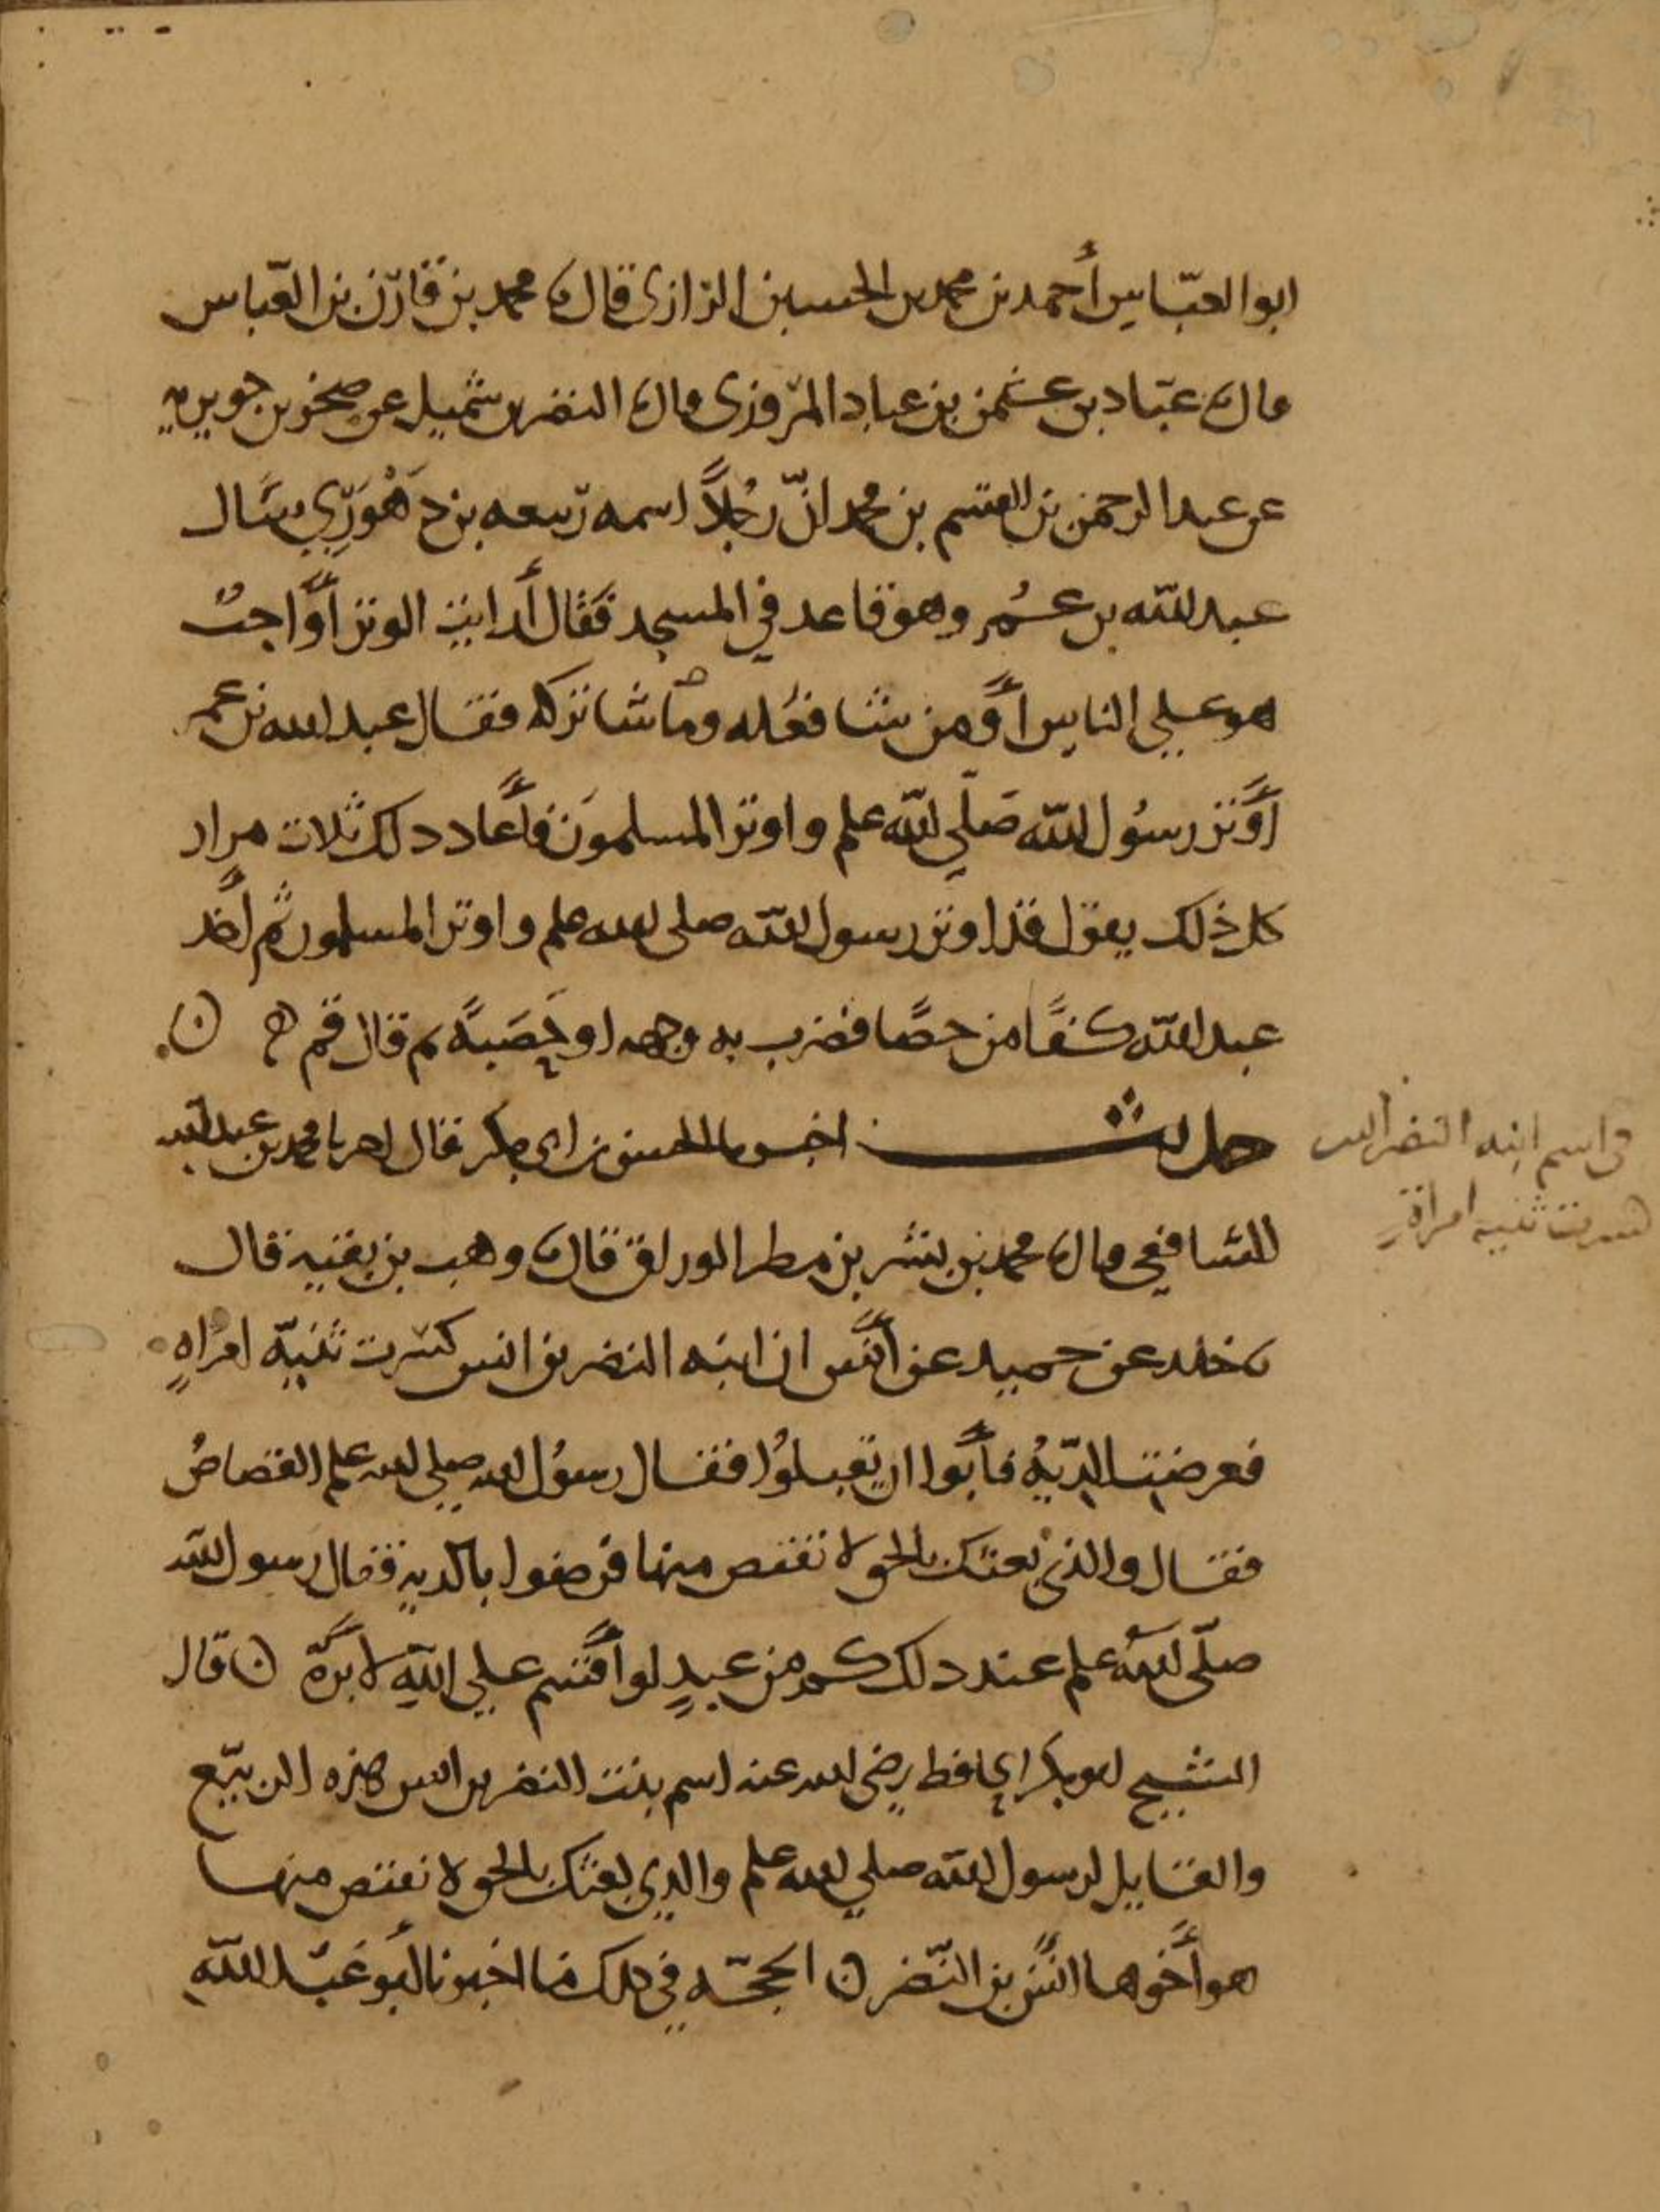 ابو العبّاس أحمد بن محمد بن الحسين الرازى قال نا محمد بن قارن بن العبّاس
قال نا عبّاد بن عثمن بن عباد المروزى قال نا النضر بن شميل عن صخر بن جويريه
عن عبد الرحمن بن القسم بن محمد انّ رجُلاً اسمه ربيعه بن سَال
عبد الله بن عمر وهو قاعد في المسجد فقال أرايت الوتر أوَاجبٌ
هو على الناس أو من شا فعله ومن شا تركه فقال عبد الله بن عمر
أَوتر رسُول الله صَلّي الله علم واوتر المسلمونَ فأعاد ذلك ثلاث مرار
كل ذلك يقول قد اوتر رسول الله صلى الله علم واوتر المسلمون ثم أخذ
عبد الله كفًا من حصًا فضرب به وجهه او حَصَبَهُ ثم قال قم
حديث اخبرنا الحسن بن ابي بكر قال اخبرنا محمد بن عبد الله
الشافعي قال نا محمد بن بشر بن مطر الوراق قال نا وهب بن بقيه قال
نا خلد عن حميد عن أنس ان ابنه النضر بن انس كسرت ثنيّه امراهٍ
فعرضت الدّيهُ فأبَوا ان يقبلوُا فقال رسوُل الله صلى الله علم القصاصُ
فقال والذى بعثك بالحق لا تقتص منها فرضوا بالديه فقال رسول الله
صلّى الله علم عند ذلك كم من عبدٍ لو أقسم على اللهِ لأبرّهُ ن قال
الشيخ ابو بكر الحافظ رضى الله عنه اسم بنت النضر بن انس هذه الربيّع
والقايل لرسول الله صلي الله علم والذي بعثك بالحق لا تقتص منها
هو أخوها انسُ بن النّضر ن الحجّه في ذلك ما اخبرنا ابو عَبْد اللهِ
فى اسم ابنه النضر التى
كسرت ثنيه امراة